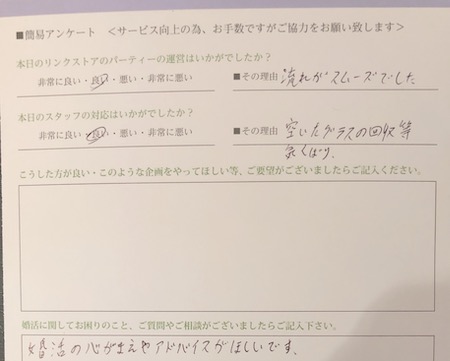 ■簡易アンケート <サービス向上の為、お手数ですがご協力をお願い致します>
本日のリンクストアのパーティーの運営はいかがでしたか?
非常に良い・良い・悪い・非常に悪い ■その理由 流れがスムーズでした
本日のスタッフの対応はいかがでしたか?
非常に良い・良い・悪い・非常に悪い ■その理由 空いたグラスの回収等
気くばり、
こうした方が良い・このような企画をやってほしい等、ご要望がございましたらご記入ください。
婚活に関してお困りのこと、ご質問やご相談がございましたらご記入下さい。
婚活の心がまえやアドバイスがほしいです、